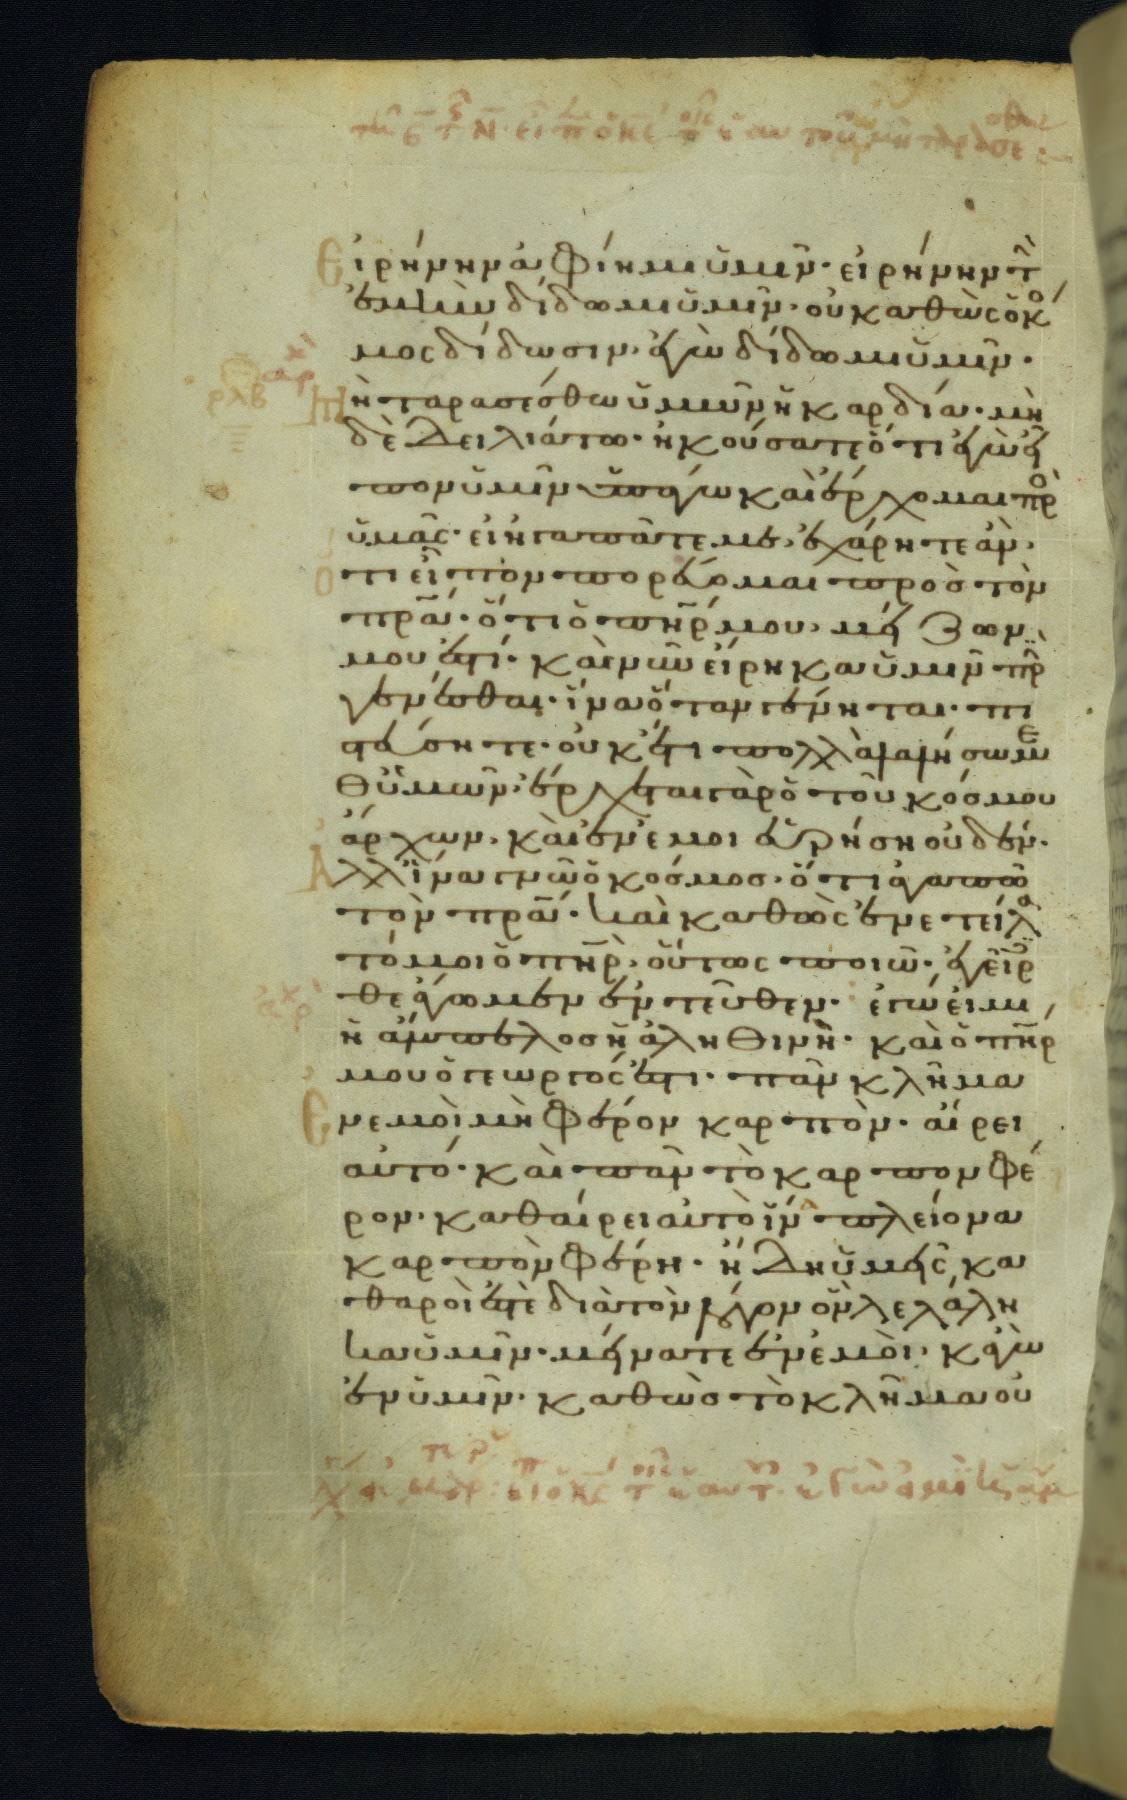 Εἰρήνην ἀφίημι ὑμῖν· εἰρήνην τ
ἐμὴν δίδωμι ὑμῖν· οὐ καθὼς ὁ κό
μος δίδωσιν, ἐγὼ δίδωμι ὑμῖν·
Μὴ ταρασέσθω ὑμῶν ἡ καρδία· μη
δὲ δειλιάτω· ἠκούσατε ὅτι ἐγὼ εἶ
πον ὑμῖν ὑπάγω καὶ ἔρχομαι πρὸ
ὑμᾶς· εἰ ἠγαπᾶτε με, ἐχάρητε ἄν,
ὅτι εἶπον πορεύομαι πρὸς τὸν
πρα· ὅτι ὁ πηρ μου, μείζων
μου ἐστί· καὶ νῦν εἴρηκα ὑμῖν πρ
γενέσθαι· ἵνα ὅταν γένηται· πι
στεύσητε· οὐκέτι πολλὰ λαλήσω με
θ ὑμῶν, ἔρχεται γὰρ ὁ τοῦ κόσμου
ἄρχων, καὶ ἐν ἐμοι εὑρήση οὐδέν·
Ἀλλ ἵνα γνῶ ὁ κόσμος· ὅτι ἀγαπῶ
τὸν πρα· καὶ καθὼς ἐνετείλα
τό μοι ὁ πηρ, οὕτως ποιῶ· ἐγείρ
θε ἄγωμεν ἐντεῦθεν· ἐγώ εἰμι
ἡ ἄμπελος ἡ ἀληθινὴ· καὶ ὁ πηρ
μου ὁ γεωργός ἐστι· πᾶν κλῆμα
Ἐν ἐμοὶ μὴ φέρον καρπὸν· αἴρει
αὐτό· καὶ πᾶν τὸ καρπον φέ
ρον· καθαίρει αὐτὸ ἵνα πλείονα
καρπὸν φέρη· ἤδη ὑμεῖς κα
θαροὶ ἐστὲ διὰ τὸν λόγον ὃν λελάλη
κα ὑμῖν· μείνατε ἐν ἐμοὶ, κἀγὼ
ἐν ὑμῖν· καθὼς τὸ κλῆμα οὐ